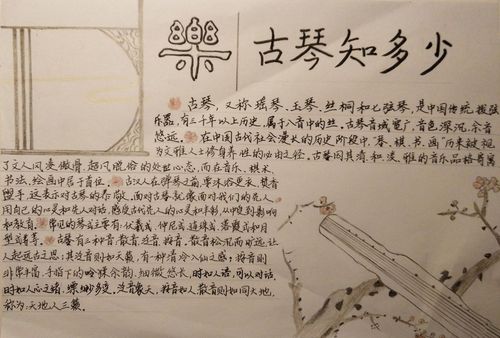 樂
古琴知多少
古琴，又称瑶琴、玉琴、丝桐和七弦琴，是中国传统拨弦
乐器，有三千年以上历史，属于八音中的丝。古琴音域宽广，音色深沉，余音
悠远。在中国古代社会漫长的历史阶段中，"琴、棋、书、画"历来被视
为文雅人士修身养性的必由之径。古琴因其清、和、淡、雅的音乐品格寄寓
了文人风凌傲骨、超凡脱俗的处世心态，而在音乐、棋术、
书法、绘画中居于首位。古汉人在弹琴之前，沐浴更衣，焚香
盟手，这表示对古琴的恭敬，面对古琴就像面对我们的先人，
用自己的心灵和先人对话，感受古代先人的心灵和丰彩，从中受到影响
和教育。常见的琴式主要有：伏羲式、仲尼式、连珠式、落霞式和月
型式等。古琴有三种音，散音、泛音、按音，散音松沉而旷远，让
人起远古之思；其泛音则如天籁，有一种清冷入仙之感；按音则
非常丰富，手指下的吟猱余韵、细微悠长，时如人语，可以对话，
时如人心之绪，缥缈多变。泛音象天，按音如人，散音则如同大地，
称为天地人三籁。